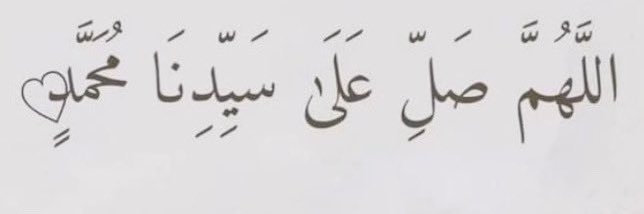 اللَّهُمَّ صَلِّ عَلَىٰ سَيِّدِنَا مُحَمَّدٍ